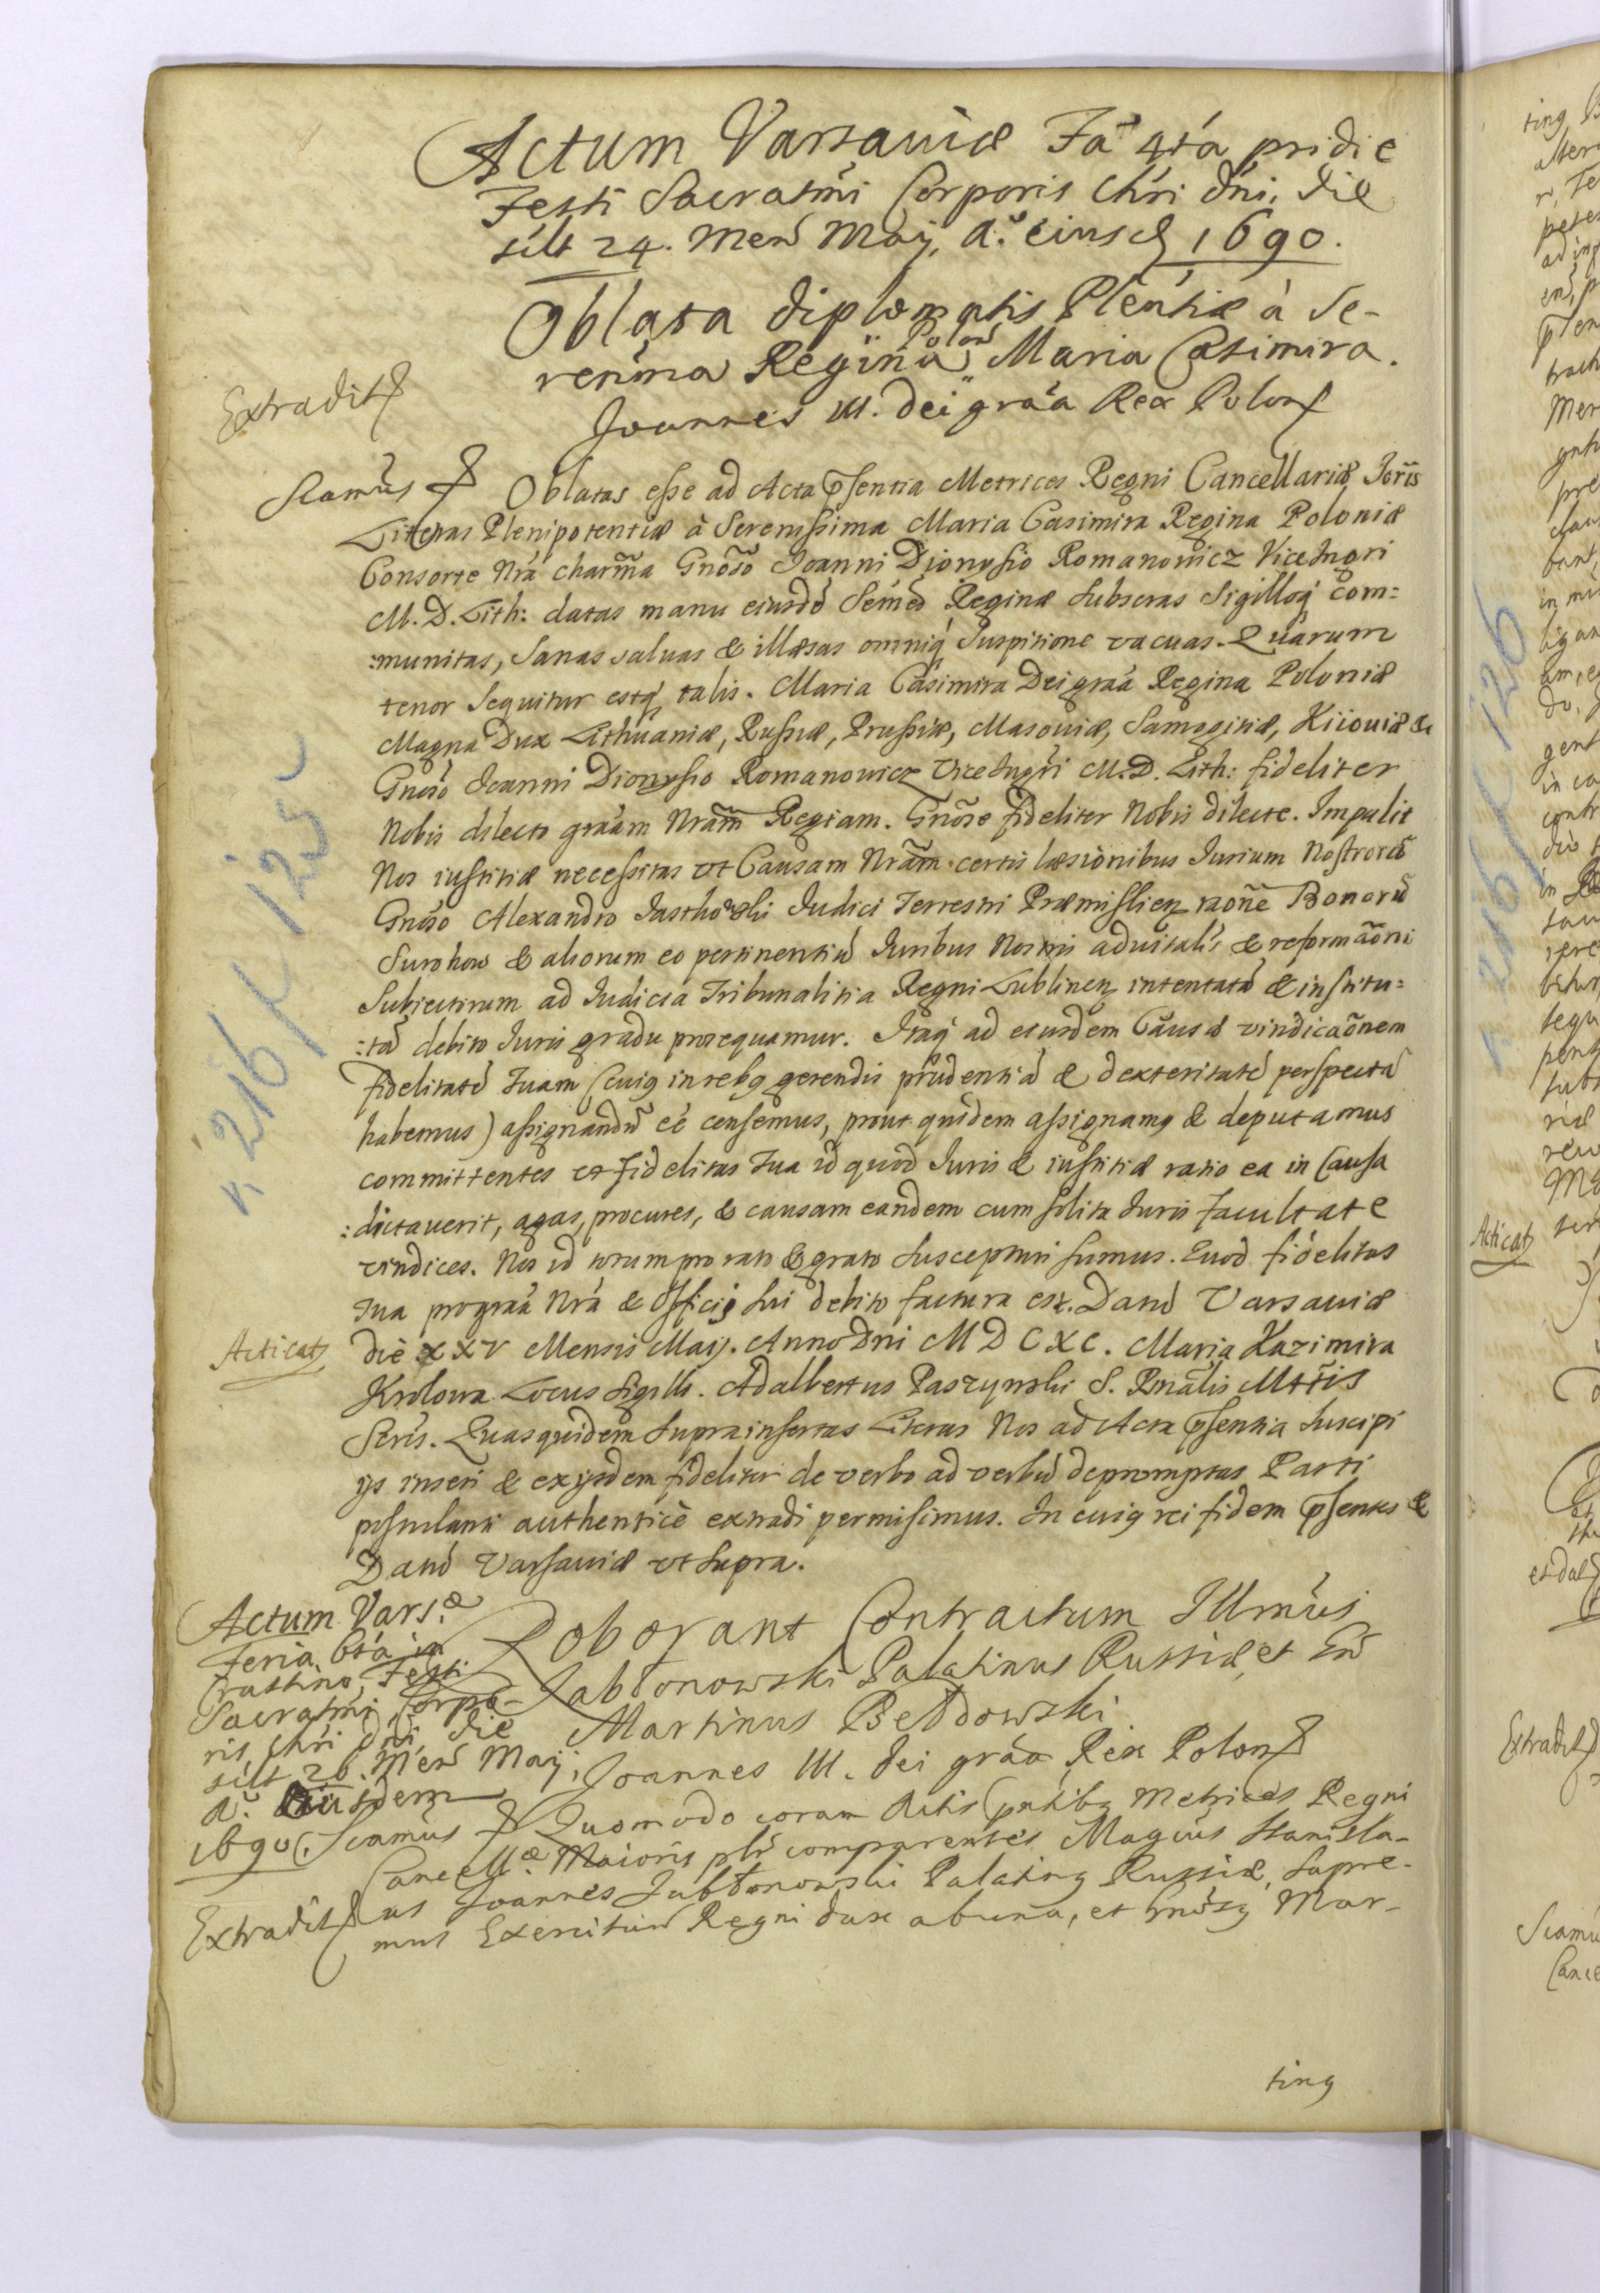 Actum Varsaviæ Fa 4tá pridie
Festi Sacratmi Corporis Chri Dni, die
silt 24. Men Maij, A.o eiusd 1690.
Oblata diplomatis Plentiæ à Se-
renima Regina Polon Maria Casimira.
Joannes III. Dei gráa Rex Polon
Extradit
Scamus
Oblatas esse ad Acta psentia Metrices Regni Cancellariæ Ioris
Literas Plenipotentiæ à Serenissima Maria Casimira Regina Poloniæ
Consorte Nrá charma Gnoso Joanni Dionysio Romanowicz Vice Insri
M. D. Lith: datas manu eiusdé Semæ Reginæ Subscras Sigilloq com=
:munitas, Sanas salvas & illæsas omniq Suspitione vacuas. Quarum
tenor Sequitur estq talis. Maria Casimira Dei gráa Regina Poloniæ
Magna Dux Lithuaniæ, Russiæ, Prussiæ, Masoviæ, Samogitiæ, Kiioviæ &
Gnoso Joanni Dionysio Romanowicz Vice Insri M. D. Lith: fideliter
Nobis dilecto gráam Nram Regiam. Gnose fideliter Nobis dilecte. Impulit
Nos iustitiæ necessitas ut Causam Nram certis læsionibus Iurium Nostroru
Gnoso Alexandro Judici Terrestri Præmislien raone Bonorú
Surohow & aliorum eo pertinentiú Iuribus Nostris advitalis & reformaoni
Subiectorum ad Iudicia Tribunalitia Regni Lublinen intentatá & institu=
:tá debito Iuris gradu prosequamur. Itaq ad eiusdem Causæ vindicaonem
fidelitaté Tuam (cuig in rebg gerendis prudentiá & dexteritaté perspectá
habemus) assignandú éé censemus, prout quidem assignamg & deputamus
committentes ut fidelitas Tua id quod Iuris & iustitiæ ratio ea in Causa
:dictaverit, agas, procures, & causam eandem cum solita Iuris facultate
vindices. Nos id totum pro rato & grato Suscepturi Sumus. Quod fidelitas
Tua pro gráa Nrá & Officij Sui debito factura est. Datú Varsaviæ
die XXV Mensis Maij. Anno Dni MDCXC. Maria Kazimira
Acticat
Krolowa Locus Sigilli. Adalbertus Paszynski S. Rnalis Mttis
Scris. Quas quidem Supra insertas Literas Nos ad Acta psentia Suscipi
ijs inseri & ex ijsdem fideliter de verbo ad verbú depromptas Parti
postulanti authenticè extradi permisimus. In cuig rei fidem psentes &
Datú Varsaviæ ut Supra.
Actum Vars.æ
Feria 6tá in
Crastino Festi
Sacratmi Corpo-
ris Chri Dni, die
silt 26. Men Maij,
A.o Eiusdem
1690.
Roborant Contractum Illmus
Jabłonowski Palatinus Russiæ, et Gn
Martinus Bełdowski
Joannes III. Dei gráa Rex Polon
Scamus Quomodo coram Actis pntibg Metrices Regni
Cancell.æ Maioris plr comparentes Magcus Stanisla-
us Joannes Jabłonowski Palating Russiæ, Supre-
Extradit
mus Exercituú Regni dux ab una, et Gnosg Mar-
ting
k. 216 / 125
k. 216 / 126
Acticat
Extradit